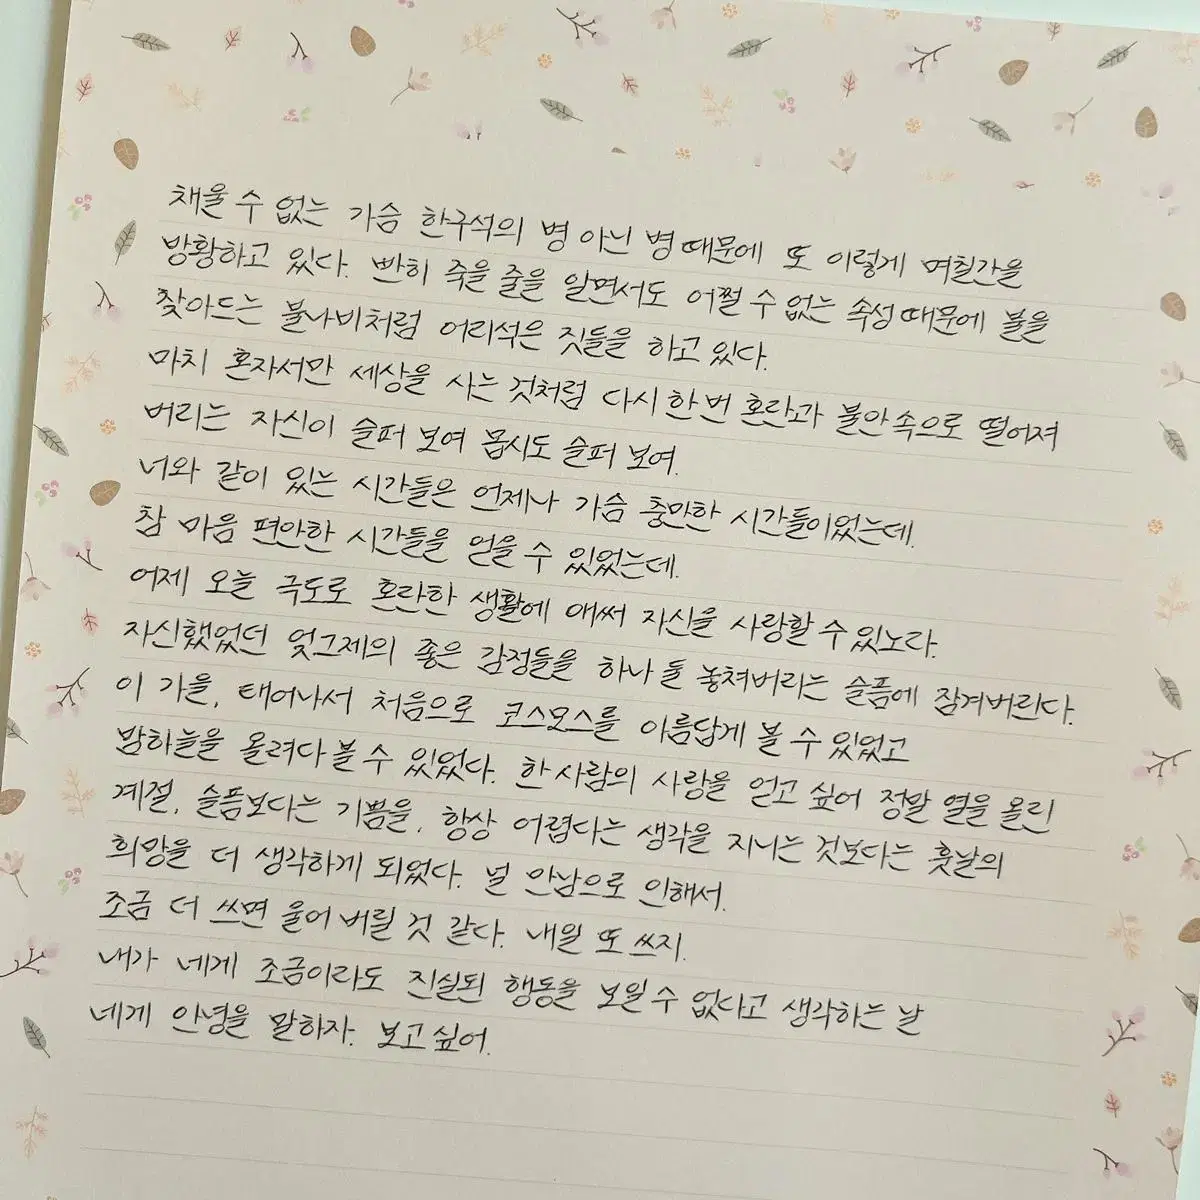 채울 수 없는 가슴 한구석의 병 아닌 병 때문에 또 이렇게 며칠간을
방황하고 있다. 빤히 죽을 줄을 알면서도 어쩔 수 없는 속성 때문에 불을
찾아드는 불나비처럼 어리석은 짓들을 하고 있다.
마치 혼자서만 세상을 사는 것처럼 다시 한 번 혼란과 불안 속으로 떨어져
버리는 자신이 슬퍼 보여 몹시도 슬퍼 보여.
너와 같이 있는 시간들은 언제나 가슴 충만한 시간들이었는데.
참 마음 편안한 시간들을 얻을 수 있었는데.
어제 오늘 극도로 혼란한 생활에 애써 자신을 사랑할 수 있노라.
자신했었던 엊그제의 좋은 감정들을 하나 둘 놓쳐버리는 슬픔에 잠겨버린다.
이 가을, 태어나서 처음으로 코스모스를 아름답게 볼 수 있었고
밤하늘을 올려다 볼 수 있었다. 한 사람의 사랑을 얻고 싶어 정말 열을 올린
계절, 슬픔보다는 기쁨을, 항상 어렵다는 생각을 지니는 것보다는 훗날의
희망을 더 생각하게 되었다. 널 만남으로 인해서.
조금 더 쓰면 울어 버릴 것 같다. 내일 또 쓰지.
내가 네게 조금이라도 진실된 행동을 보일 수 없다고 생각하는 날
네게 안녕을 말하자. 보고 싶어.